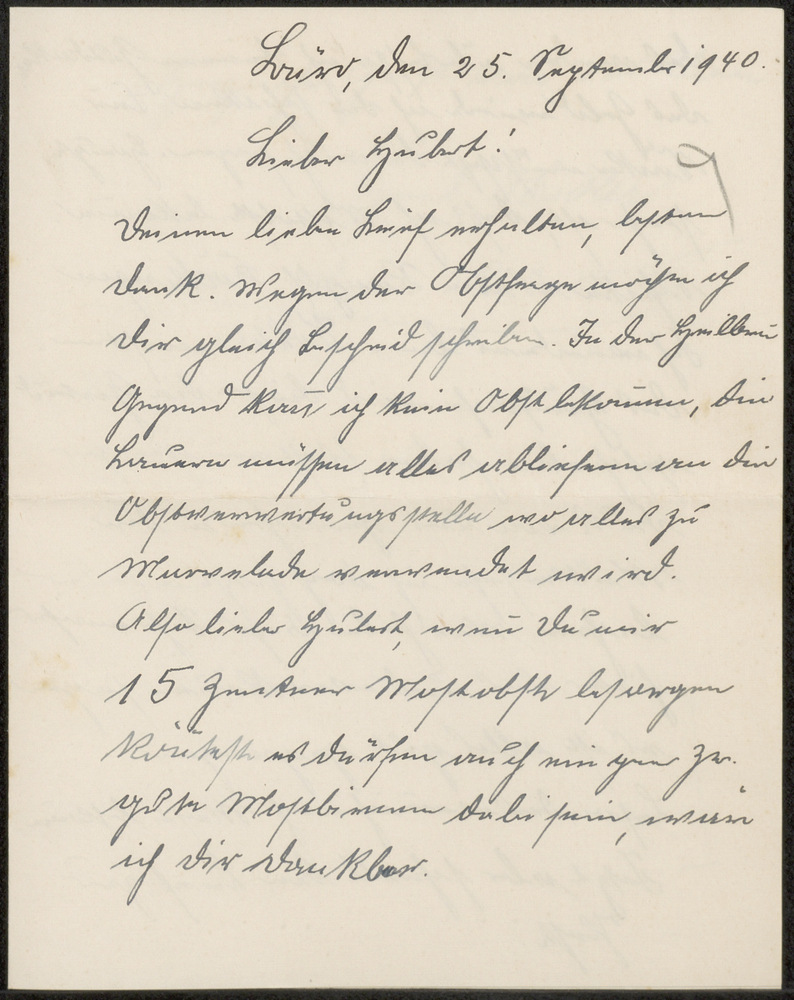 den 25. September 1940.
Lieber Hubert!
Deinen lieben Brief erhalten, besten
Dank. Wegen der Obstfrage möchte ich
Dir gleich Bescheid schreiben. In der Heilbron
Gegend kan̅ ich kein Obst bekom̅en, die
Bauern müssen alles abliefern an die
Obstverwertungsstelle wo alles zu
Marmelade verwendet wird.
Also lieber Hubert, wen̅ Du mir
15 Zentner Mostobst besorgen
kön̅test es dürfen auch ein paar Ztr.
gute Mostbirnen dabei sein, wäre
ich Dir dankbar.